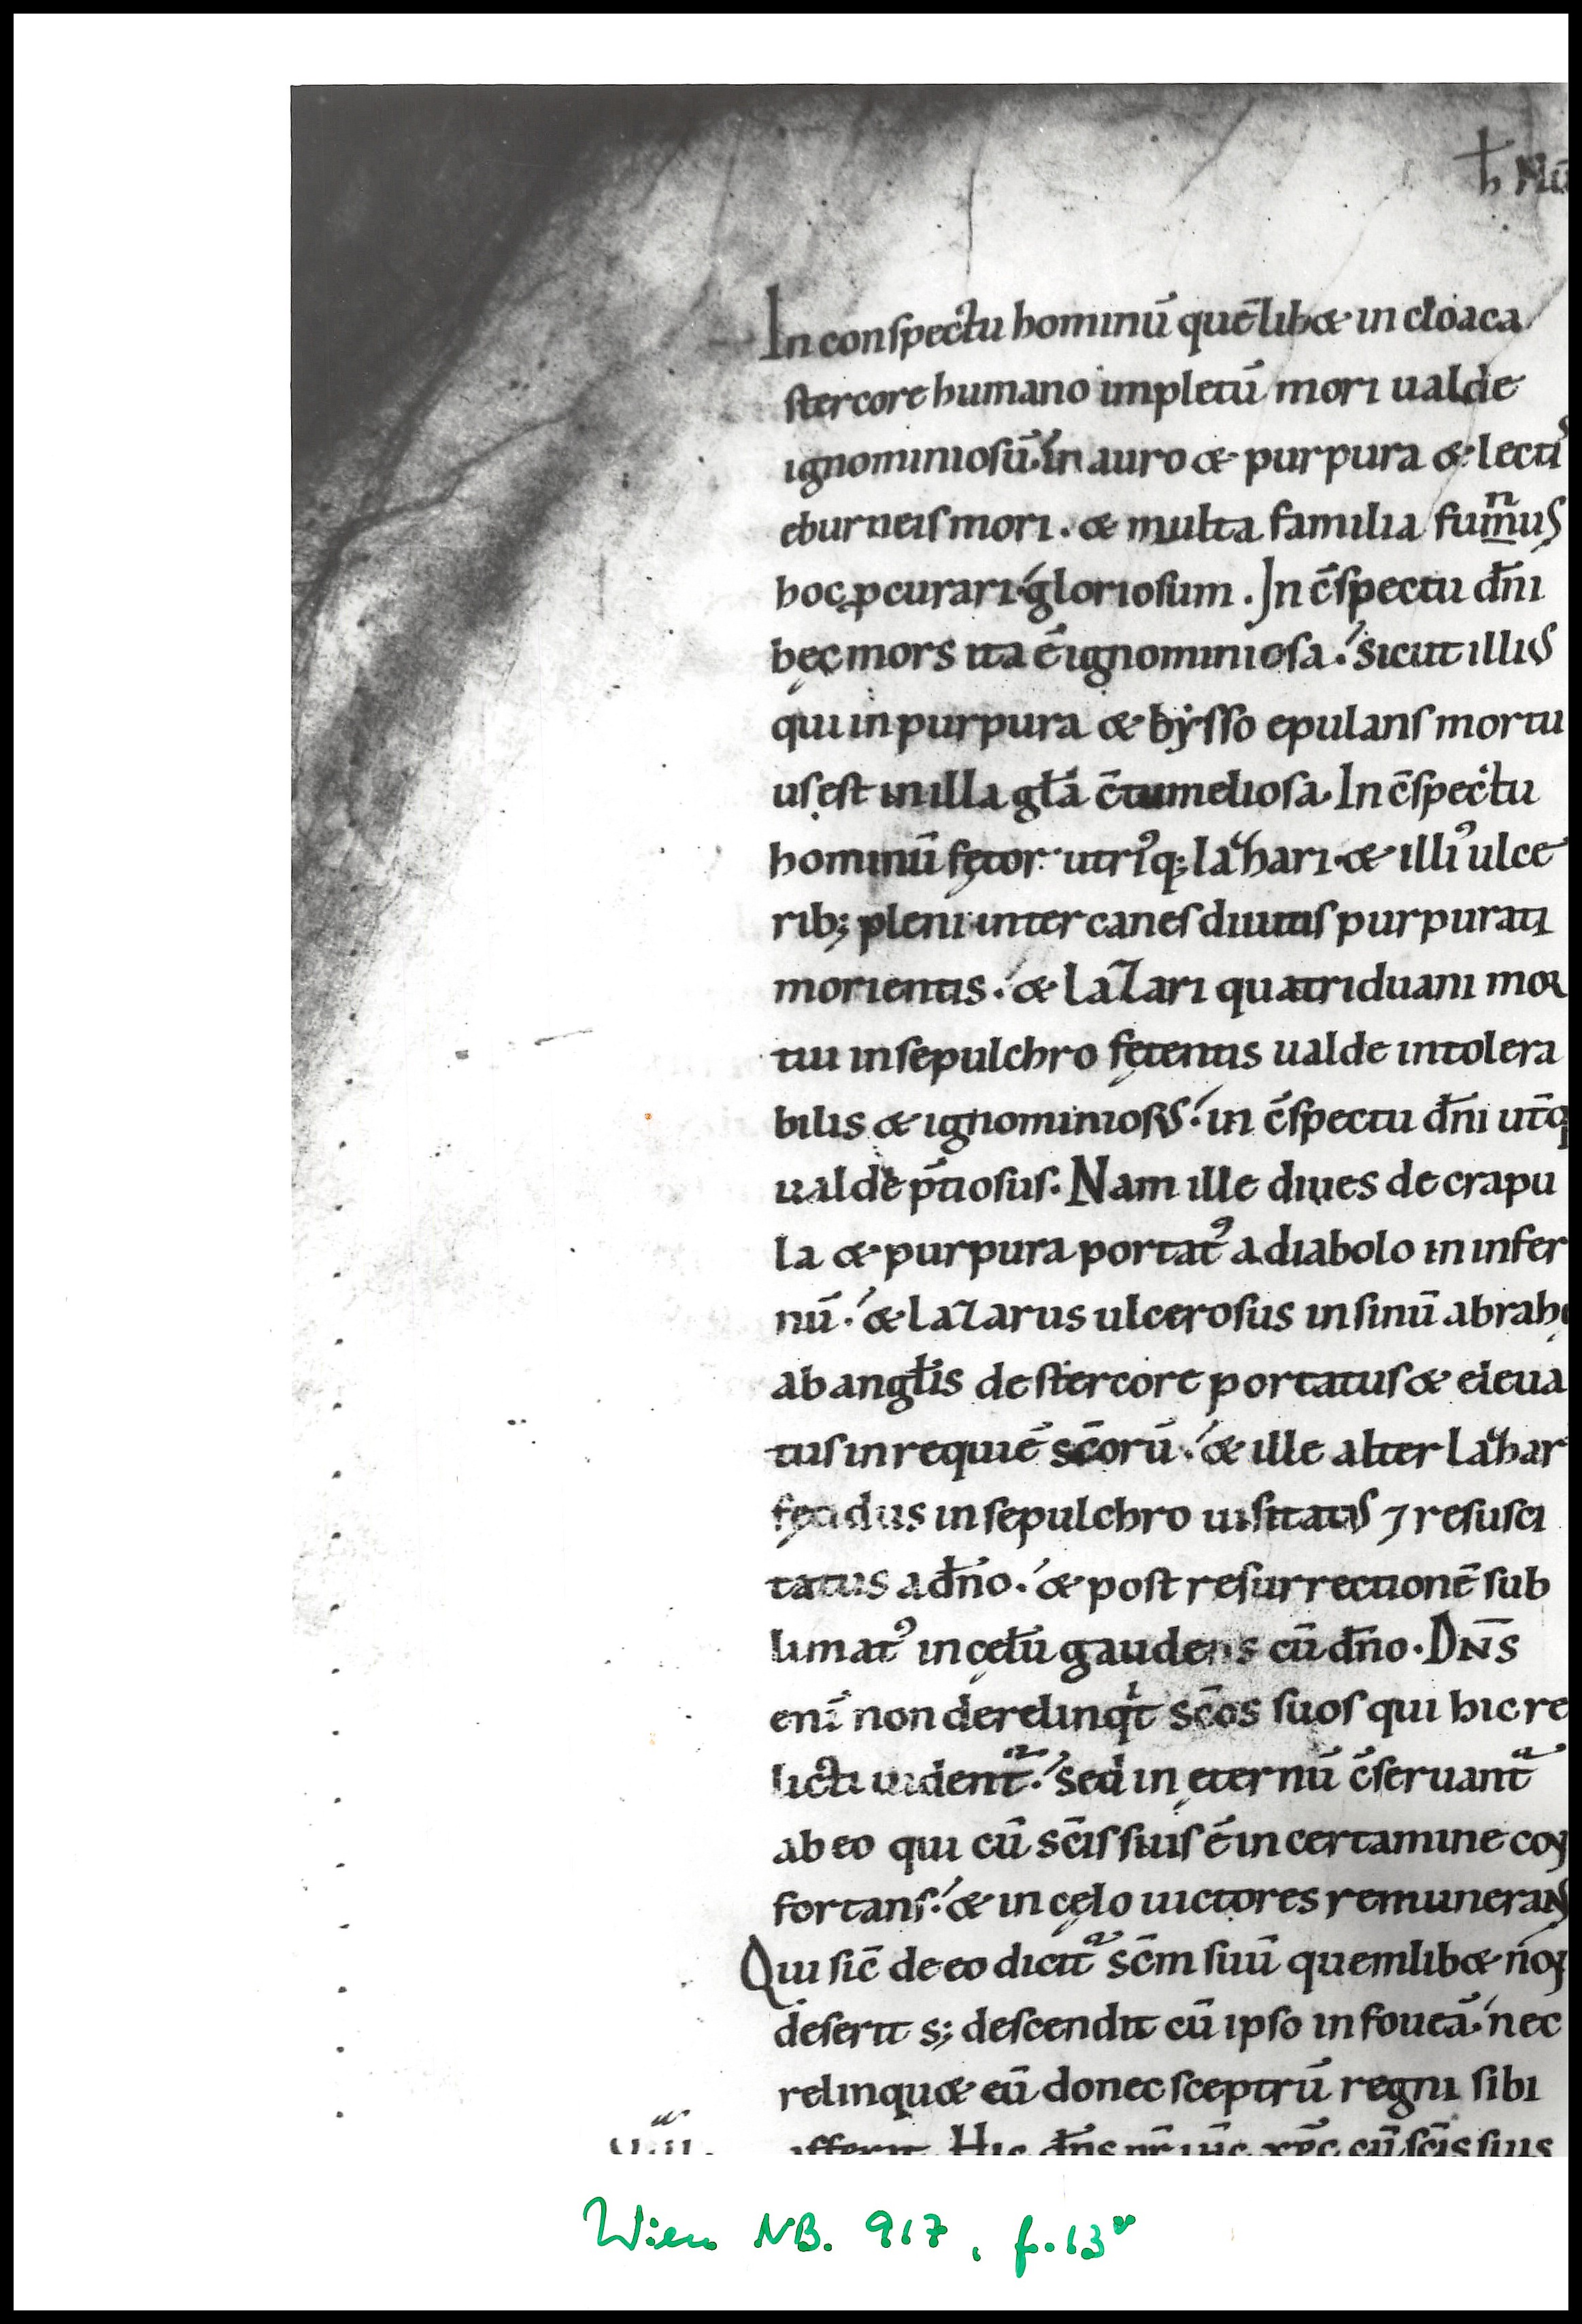 In conspectu hominū quēlib& in cloaca
stercore humano impletū mori ualde
ignominiosū. in auro & purpura & lecti
eburneis mori. & multa familia funus
hoc ꝓcurari gloriosum. In c̄spectu dn̄i
hęc mors ita ē ignominiosa. sicut illiꝰ
qui in purpura & bysso epulans mortu
us est in illa gła c̄tumeliosa. In c̄spectu
hominū fętor utriꝰq; lazari & illiꝰ ulce
rib; pleni inter canes diuitis purpurati
morientis. & Lazari quatriduani mor
tui in sepulchro fętentis ualde intolera
bilis & ignominiosꝰ. in c̄spectu dn̄i ut̄q
ualde p̄tiosus. Nam ille diues de crapu
la & purpura portatꝰ a diabolo in infer
nū. & lazarus ulcerosus in sinū abrahę
ab angłis de stercore portatus & eleua
tus in requiē sc̄orū. & ille alter lazar
fętidus in sepulchro uisitatꝰ ⁊ resusci
tatus a dn̄o. & post resurrectionē sub
limatꝰ in cęlū gaudens cū dn̄o. DN̄S
enī non derelinqit sc̄os suos qui hic re
licti uident᷑. sed in ęternū c̄seruant᷑
ab eo qui cū sc̄is suis ē in certamine con
fortans. & in cęlo uictores remunerans
Qui sic̄ de eo dicit᷑ sc̄m suū quemlib& non
deserit s; descendit cū ipso in foueā. nec
relinqu& eū donec sceptrū regni sibi
afferat. Hic dn̄s nr̄ ih̄c xp̄c cū sc̄is suis
Wien NB. 917, f.13v